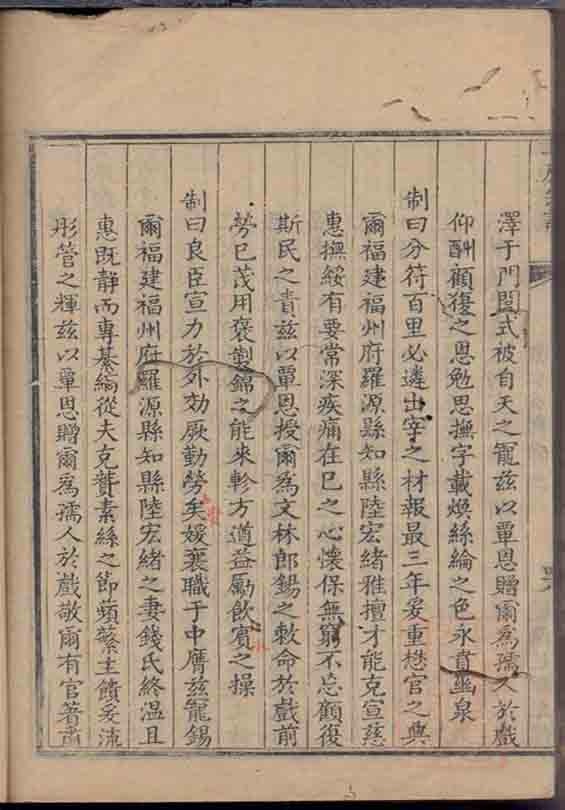 澤于門閭式被自天之寵茲以覃恩贈爾為孺人於戲
仰酬顧復之恩勉思撫字載煥絲綸之色永賁幽泉
制曰分符百里必遴出宰之材報最三年爰重懋官之典
爾福建福州府羅源縣知縣陸宏緒雅擅才能克宣慈
惠撫綏有要常深疾痛在已之心懷保無窮不忘顧復
斯民之責茲以覃恩授爾為文林郎錫之敕命於戲前
勞已茂用褒製錦之能來軫方遒益勵飲冰之操
制曰良臣宣力於外効厥勤勞矣媛襄職于中膺茲寵錫
爾福建福州府羅源縣知縣陸宏緒之妻錢氏終溫且
惠既靜而專綦縞從夫克贊素絲之節蘋蘩主饋妥流
彤管之輝茲以覃恩贈爾為孺人於戲敬爾有官著肅